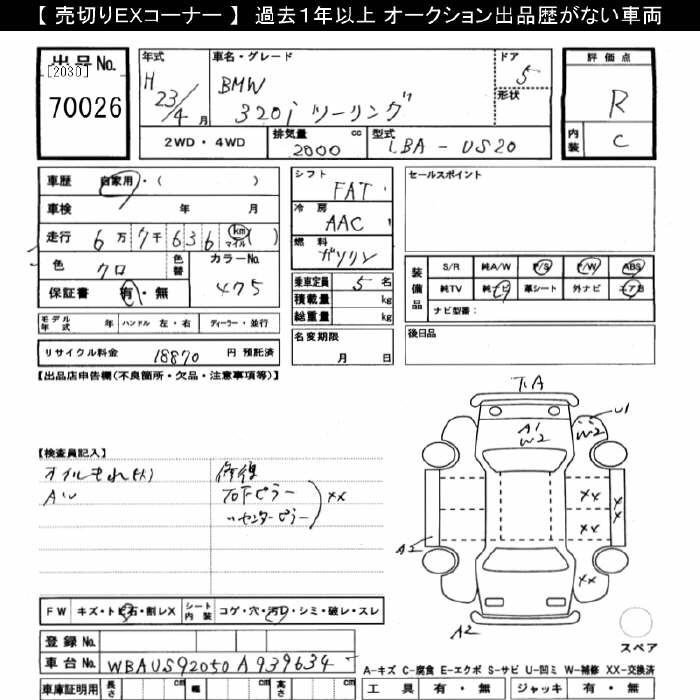 【 売切りEXコーナー 】 過去1年以上 オークション出品歴がない車両
出品No. [2030] 70026
年式 H23/4月
車名・グレード BMW 320i ツーリング
ドア 5
形状
評価点 R
内装 C
2WD・4WD 排気量 2000 cc 型式 LBA-US20
車歴 自家用・( )
車検 年 月
走行 6万7千636 km マイル ( )
色 クロ 色替 カラーNo. 475
保証書 有・無
シフト FAT
冷房 AAC
燃料 ガソリン
乗車定員 5名
積載量 kg
総重量 kg
セールスポイント
装備品 S/R 純A/W P/S P/W ABS
純TV 純ナビ 革シート 外ナビ エアB
ナビ型番:
モデル年式 年 ハンドル 左・右 ディーラー・並行
名変期限 月 日
後日品
リサイクル料金 18870 円 預託済
【出品店申告欄(不良箇所・欠品・注意事項等)】
T.A
A1 W2
U1
W2
【検査員記入】
オイルもれ(大) 修復
AW 右Fピラー
〃センターピラー XX
XX XX XX
XX XX
XX
A2
A2
FW キズ・トビ石・割レX シート内装 コゲ・穴・汚レ・シミ・破レ・スレ
スペア
登録No.
車台No. WBAUS92050A939634
A-キズ C-腐食 E-エクボ S-サビ U-凹ミ W-補修 XX-交換済
車庫証明用 長さ cm 幅 cm 高さ cm
工具 有・無 ジャッキ 有・無